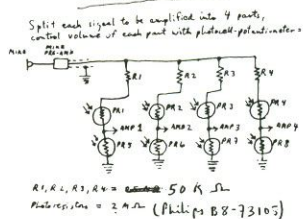 Split each signal to be amplified into 4 parts,
control volume of each part with photocell-potentiometers
MIKE
MIKE
PRE-AMP
R1
R2
R3
R4
PR1
PR2
PR3
PR4
AMP 1
AMP 2
AMP 3
AMP 4
PR5
PR6
PR7
PR8
R1, R2, R3, R4 = 50 K Ω
Photoresistors = 2 M Ω (Philips B8-73105)